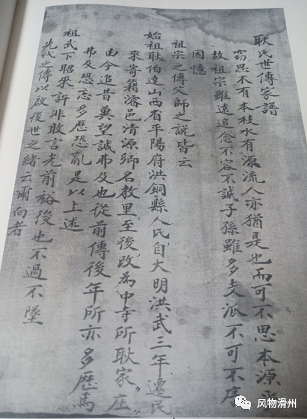 耿氏世傳家譜
竊思木有本枝水有源流人亦猶是也而可不思本源
故祖宗雖遠追念不容不誠子孫雖多支派不可不序
因憶
祖宗之傳父師之說皆云
始祖耿伯達山西省平陽府洪銅縣人民自大明洪武三年遷民
來寄籍濬邑清源鄉名教里至後改為中寺所耿家庄
由今追昔莫望誠弗及也從前傳後年所亦多歷焉
弗及恐忘多歷恐亂是以上述
祖武下昭來許非敢言光前裕後也不過不墜
先代之傳以啟後世之緒云爾向者
风物滑州